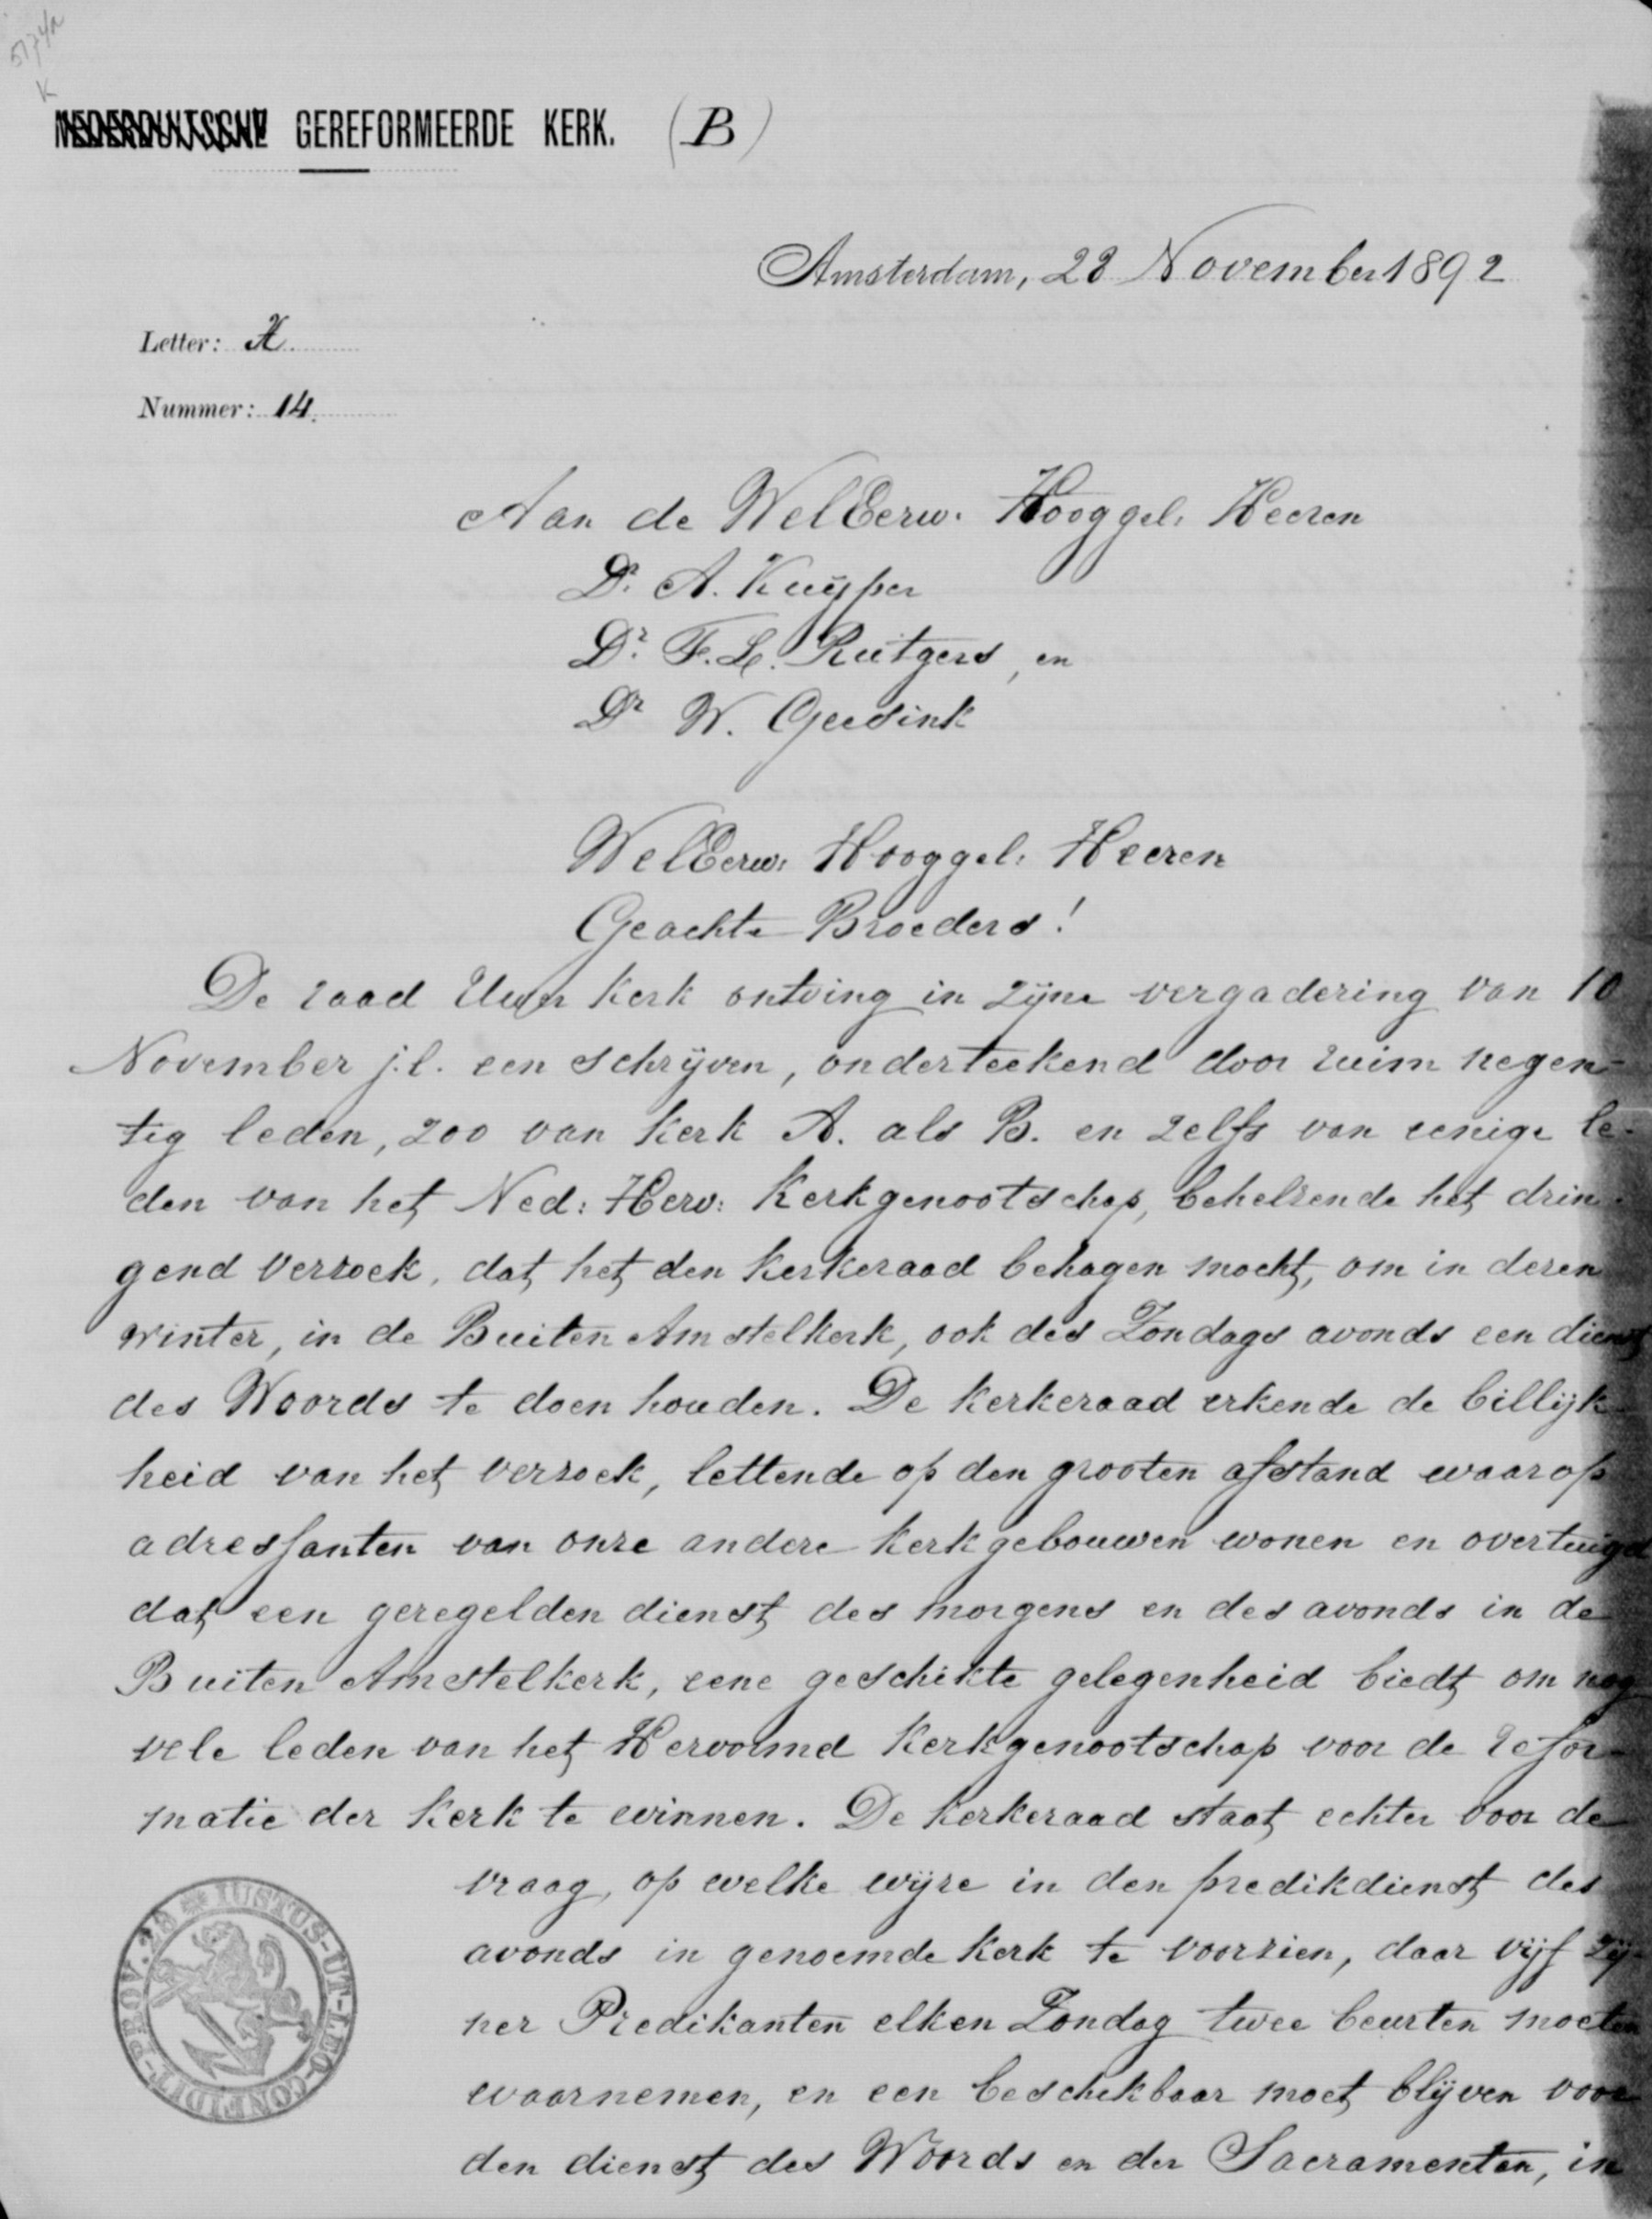 5174A
K
NEDERDUITSCHE GEREFORMEERDE KERK. (B)
Amsterdam, 28 November 1892
Letter: K.
Nummer: 14.
Aan de WelEerw. Hooggel. Heeren
Dr. A. Kuijper
Dr. F. L. Rutgers, en
Dr W. Geesink
WelEerw: Hooggel: Heeren
Geachte Broeders!
De raad Uwer kerk ontving in zijne vergadering van 10
November j.l. een schrijven, onderteekend door ruim negen-
tig leden, zoo van kerk A. als B. en zelfs van eenige le-
den van het Ned: Herv: Kerkgenootschap, behelzende het drin-
gend verzoek, dat het den kerkeraad behagen mocht, om in dezen
winter, in de Buiten Amstelkerk, ook des Zondags avonds een dienst
des Woords te doen houden. De kerkeraad erkende de billijk-
heid van het verzoek, lettende op den grooten afstand waarop
adressanten van onze andere kerkgebouwen wonen en overtuigd
dat een geregelden dienst des morgens en des avonds in de
Buiten Amstelkerk, eene geschikte gelegenheid biedt om nog
vele leden van het Hervormd Kerkgenootschap voor de refor-
matie der kerk te winnen. De kerkeraad staat echter voor de
vraag, op welke wijze in den predikdienst des
avonds in genoemde kerk te voorzien, daar vijf zij-
ner Predikanten elken Zondag twee beurten moeten
waarnemen, en een beschikbaar moet blijven voor
den dienst des Woords en der Sacramenten, in
IUSTUS-UT-LEO-CONFIDIT-PROV. 28